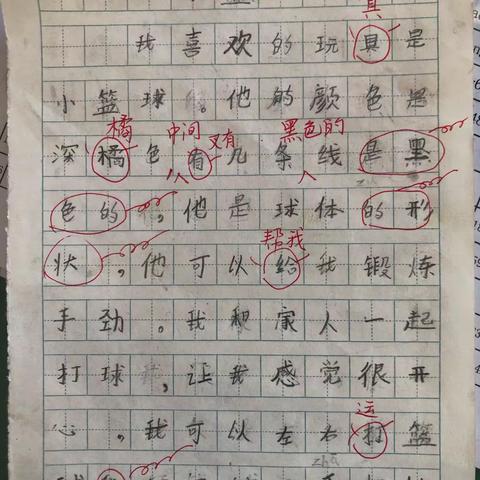 具
我喜欢的玩具是
小篮球。他的颜色是
橘 中间 又有 黑色的
深橘色有几条线是黑
色的，他是球体的形
帮我
状，他可以给我锻炼
手劲。我和家人一起
打球，让我感觉很开
运
心。我可以左右打篮